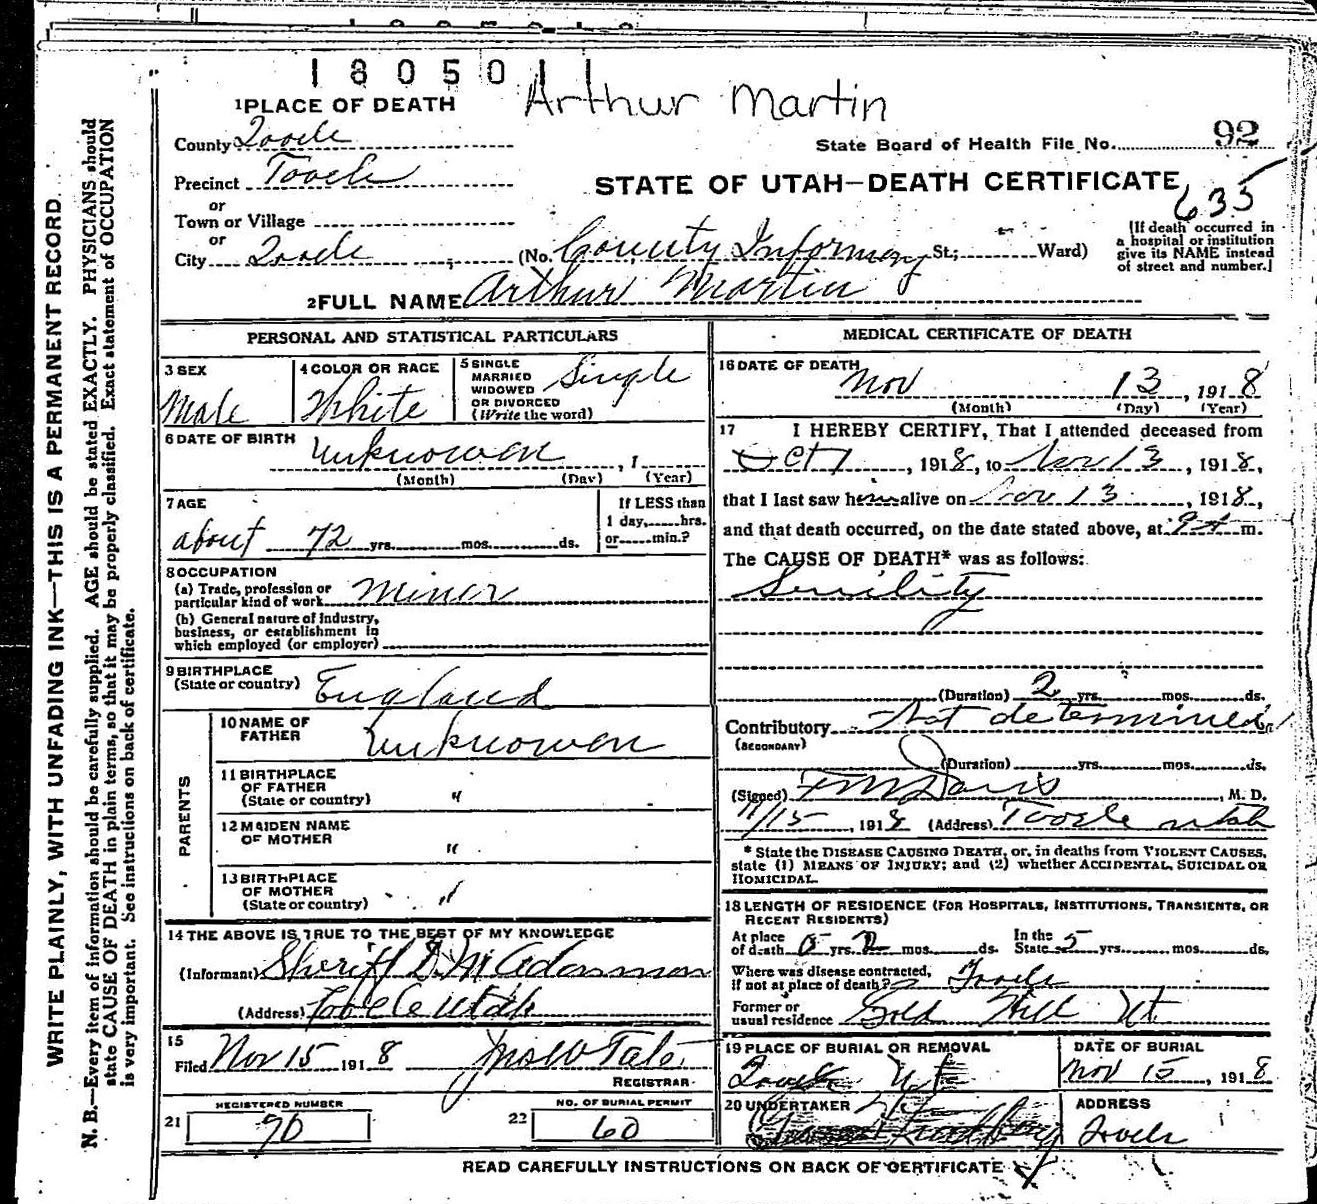 1805011
Arthur Martin
1 PLACE OF DEATH
County Tooele
State Board of Health File No. 92
Precinct Tooele
STATE OF UTAH—DEATH CERTIFICATE
635
or
Town or Village
or
City Tooele (No. County Infirmary St; Ward)
[If death occurred in
a hospital or institution
give its NAME instead
of street and number.]
2 FULL NAME Arthur Martin
PERSONAL AND STATISTICAL PARTICULARS
3 SEX
Male
4 COLOR OR RACE
White
5 SINGLE
MARRIED
WIDOWED
OR DIVORCED
(Write the word)
Single
6 DATE OF BIRTH
Unknowen , 1
(Month) (Day) (Year)
7 AGE
about 72 yrs. mos. ds.
If LESS than
1 day, hrs.
or min.?
8 OCCUPATION
(a) Trade, profession or
particular kind of work Miner
(b) General nature of industry,
business, or establishment in
which employed (or employer)
9 BIRTHPLACE
(State or country) England
PARENTS
10 NAME OF
FATHER
Unknowen
11 BIRTHPLACE
OF FATHER
(State or country) "
12 MAIDEN NAME
OF MOTHER "
13 BIRTHPLACE
OF MOTHER
(State or country) "
14 THE ABOVE IS TRUE TO THE BEST OF MY KNOWLEDGE
(Informant) Sheriff D. M. Adamson
(Address) Tooele Utah
15
Filed Nov 15 1918
REGISTRAR
REGISTERED NUMBER
21 90
NO. OF BURIAL PERMIT
22 60
MEDICAL CERTIFICATE OF DEATH
16 DATE OF DEATH
Nov 13, 1918
(Month) (Day) (Year)
17 I HEREBY CERTIFY, That I attended deceased from
Oct 1, 1918, to Nov 13, 1918,
that I last saw him alive on Nov 13, 1918,
and that death occurred, on the date stated above, at 9 A m.
The CAUSE OF DEATH* was as follows:
Senility
(Duration) 2 yrs. mos. ds.
Contributory Not determined
(SECONDARY)
(Duration) yrs. mos. ds.
(Signed) F M Davis, M. D.
11/15, 1918 (Address) Tooele Utah
* State the DISEASE CAUSING DEATH, or, in deaths from VIOLENT CAUSES,
state (1) MEANS OF INJURY; and (2) whether ACCIDENTAL, SUICIDAL OR
HOMICIDAL.
18 LENGTH OF RESIDENCE (FOR HOSPITALS, INSTITUTIONS, TRANSIENTS, OR
RECENT RESIDENTS)
At place
of death 0 yrs. 2 mos. ds.
In the
State 5 yrs. mos. ds.
Where was disease contracted,
if not at place of death? Tooele
Former or
usual residence Gold Hill Ut
19 PLACE OF BURIAL OR REMOVAL
Tooele Ut
DATE OF BURIAL
Nov 15, 1918
20 UNDERTAKER
ADDRESS
Tooele
READ CAREFULLY INSTRUCTIONS ON BACK OF CERTIFICATE
WRITE PLAINLY, WITH UNFADING INK—THIS IS A PERMANENT RECORD
N. B.—Every item of information should be carefully supplied. AGE should be stated EXACTLY. PHYSICIANS should
state CAUSE OF DEATH in plain terms, so that it may be properly classified. Exact statement of OCCUPATION
is very important. See instructions on back of certificate.